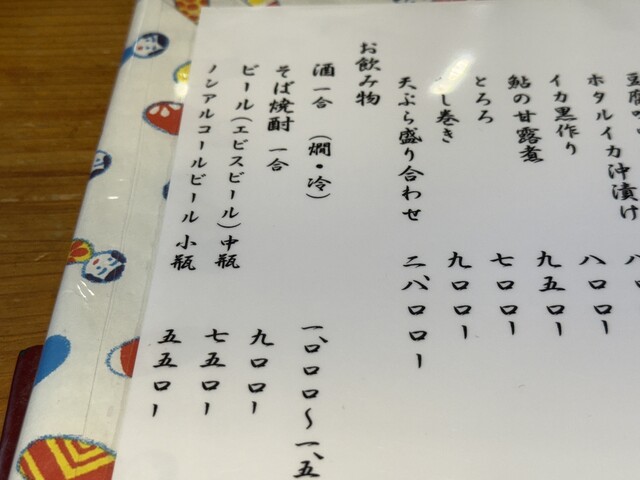 ホタルイカ沖漬け 八〇〇ー
イカ黒作り 九五〇ー
鮎の甘露煮 七〇〇ー
とろろ 九〇〇ー
し巻き
天ぷら盛り合わせ 二、八〇〇ー
お飲み物
酒 一合 (燗・冷) 一、〇〇〇〜一、五
そば焼酎 一合 九〇〇ー
ビール(エビスビール)中瓶 七五〇ー
ノンアルコールビール 小瓶 五五〇ー